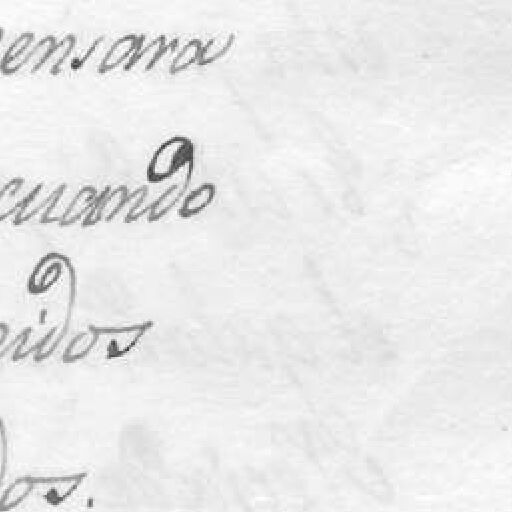 ensara
cuando
eidos
dos.